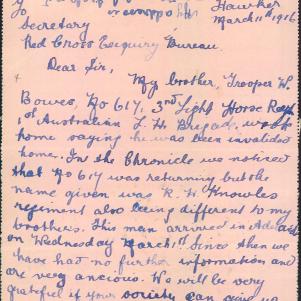 Hawker
March 11th 1916
To
Secretary
Red Cross Enquiry Bureau.
Dear Sir,
My brother, Trooper W.
Bowes, No 617, 3rd Light Horse Regt,
of Australian L. H. Brigade, wrote
home saying he was been invalided
home. In the Chronicle we noticed
that No 617 was returning but the
name given was R. W. Knowles
regiment also being different to my
brothers. This man arrived in Adelaide
on Wednesday March 1st. Since then we
have had no further information and
are very ancious. We will be very
grateful if your society can give us